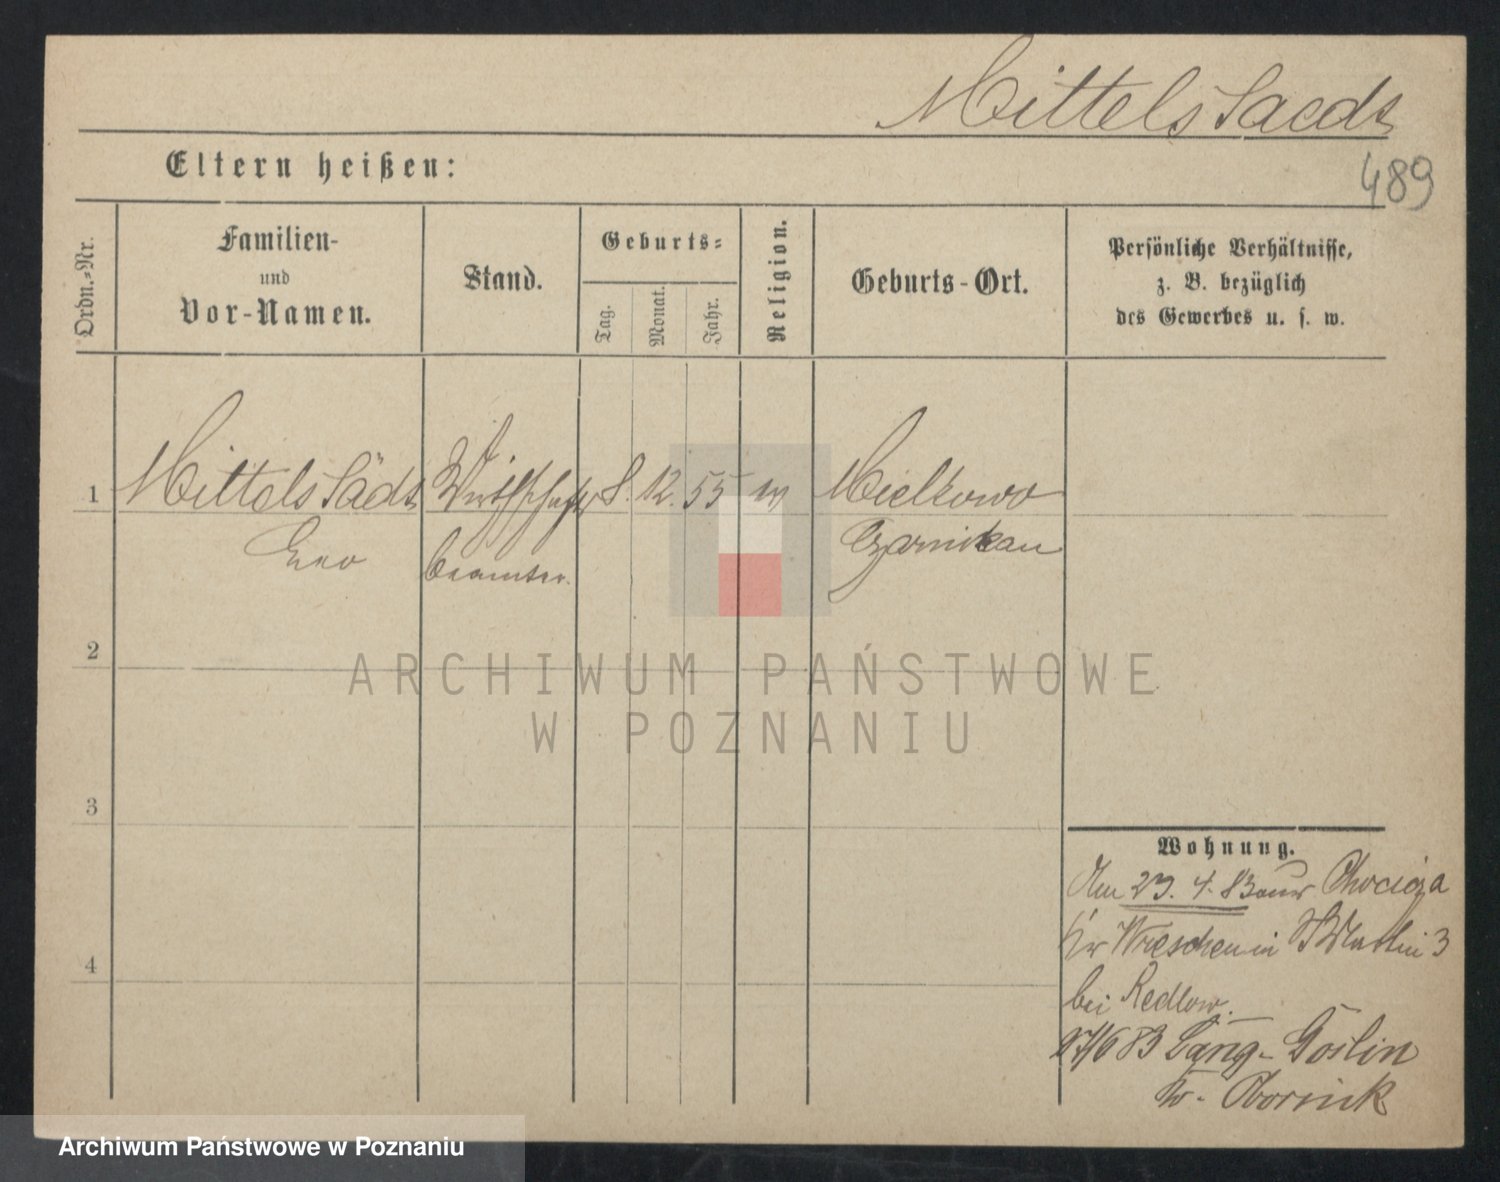 Mittelstaedt
489
Eltern heißen:
Ordn.-Nr.
Familien-
und
Vor-Namen.
Stand.
Geburts-
Tag.
Monat.
Jahr.
Religion.
Geburts-Ort.
Persönliche Verhältnisse,
z. B. bezüglich
des Gewerbes u. s. w.
1
Mittelstädt Wirthschafts 8. 12. 55 Mielkowo
Leo beamter. Czarnikau
2
ARCHIWUM PAŃSTWOWE
W POZNANIU
3
Wohnung.
Am 23. 4. 83 aus Chocicza
Kr Wreschen in St Martin 3
bei Redlow.
27/6 83 Lang-Goslin
Kr. Obornik
4
Archiwum Państwowe w Poznaniu